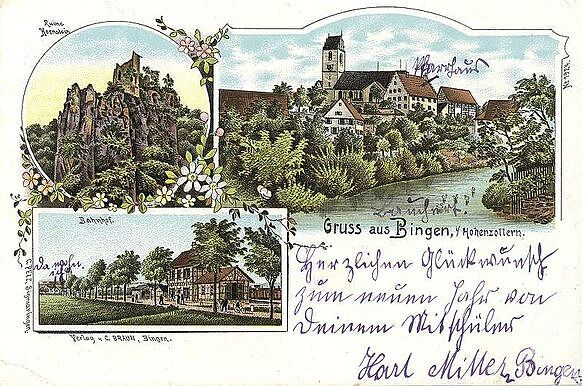 Ruine
Hornstein
Pfarrhaus
Partie.
Gruss aus Bingen, i/ Hohenzollern.
Bahnhof.
da wohn
ich
Verlag v. C. BRAUN, Bingen.
Herzlichen Glückwunsch
zum neuen Jahr von
Deinem Mitschüler
Karl Miller, Bingen